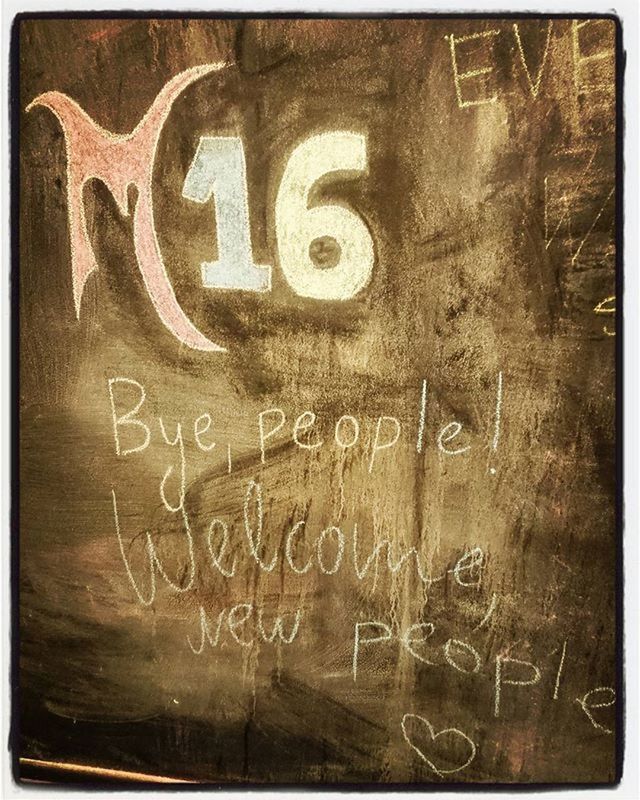 M16
EVE
Bye, people!
Welcome,
new people